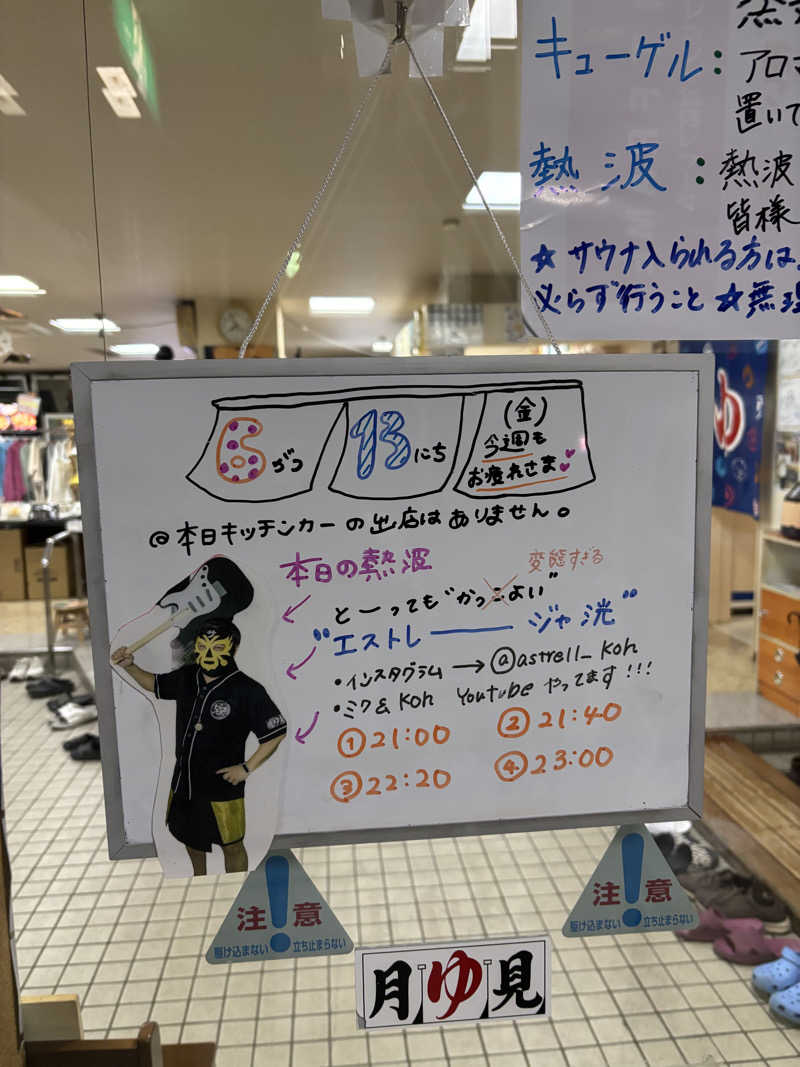 キューゲル：アロマ
置いて
熱波：熱波
皆様
☆サウナ入られる方は
必らず行うこと☆無理
6がつ
13にち
(金)
今週も
お疲れさま
@本日キッチンカーの出店はありません。
本日の熱波
変態すぎる
とーっても"かっこよい"
"エストレ――ジャ洸"
・インスタグラム→@astrell_Koh
・ミク&Koh Youtubeやってます!!!
①21:00
②21:40
③22:20
④23:00
注!意
駆け込まない 立ち止まらない
注!意
駆け込まない 立ち止まらない
月ゆ見
ゆ